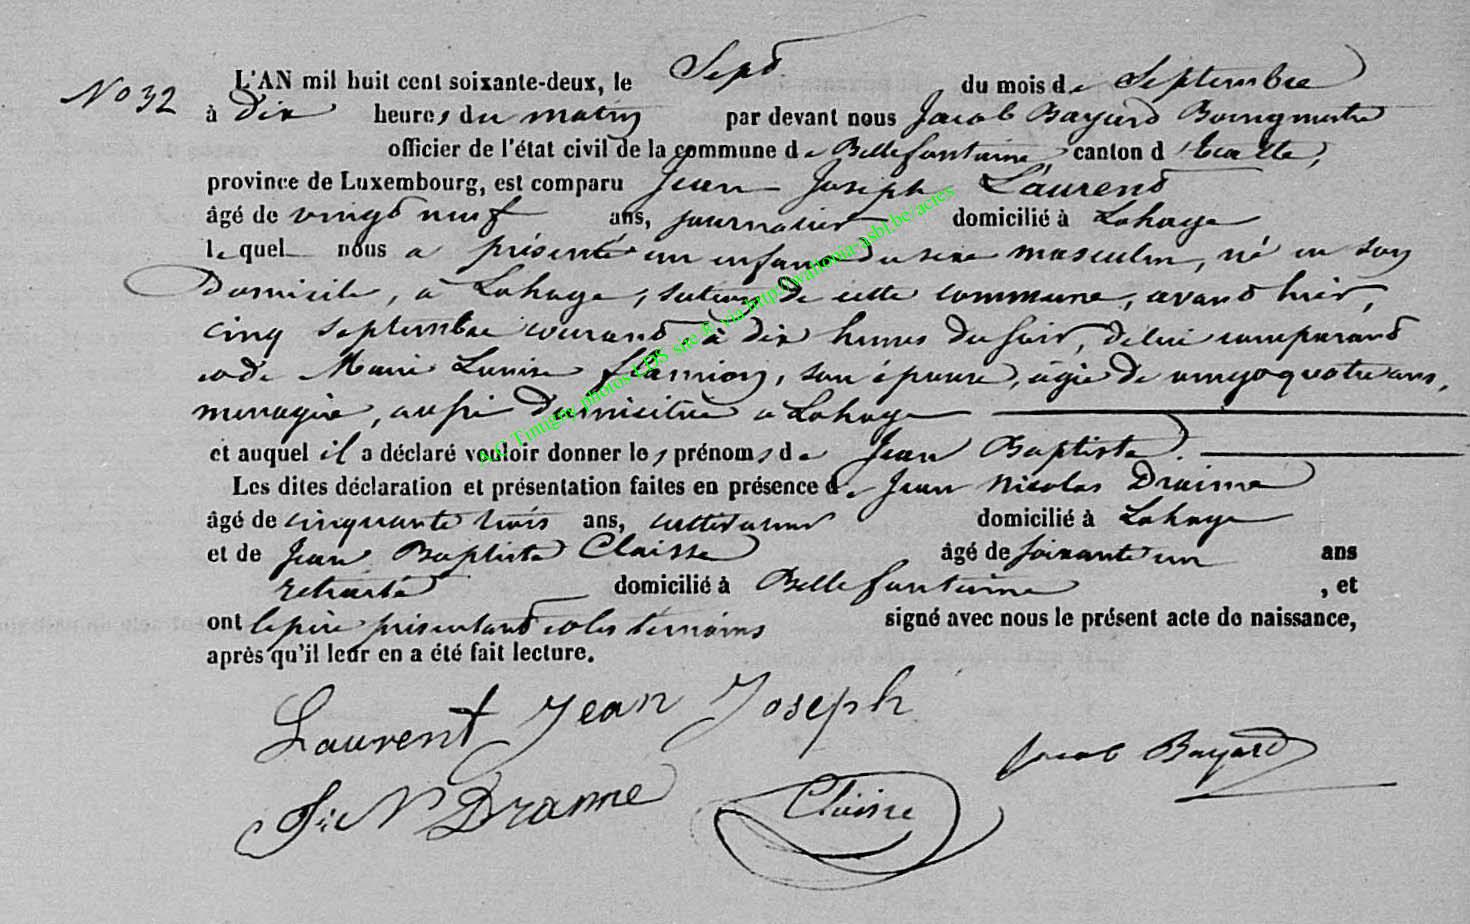 No 32
L'AN mil huit cent soixante-deux, le Sept du mois de Septembre
à Dix heures du matin par devant nous Jacob Bayard Bourgmestre
officier de l'état civil de la commune de Bellefontaine, canton d'Etalle,
province de Luxembourg, est comparu Jean Joseph Laurent
âgé de vingt neuf ans, journalier domicilié à Lahage
lequel nous a présenté un enfant du sexe masculin, né en son
Domicile, à Lahage, section de cette commune, avant hier,
cinq septembre courant, à dix heures du soir, de lui comparant
et de Marie Louise Flamion, son épouse, âgée de vingt quatre ans,
menagère, aussi domiciliée à Lahage
et auquel il a déclaré vouloir donner les prénoms de Jean Baptiste.
Les dites déclaration et présentation faites en présence de Jean Nicolas Draime
âgé de cinquante trois ans, cultivateur domicilié à Lahage
et de Jean Baptiste Claisse âgé de soixante un ans
retraité domicilié à Bellefontaine, et
ont le père présentant et les témoins signé avec nous le présent acte de naissance,
après qu'il leur en a été fait lecture.
Laurent Jean Joseph
Jacob Bayard
J: N Drame
Claisse
A.G. Tintigny photos LDS site & via http://wallonia-asbl.be/actes